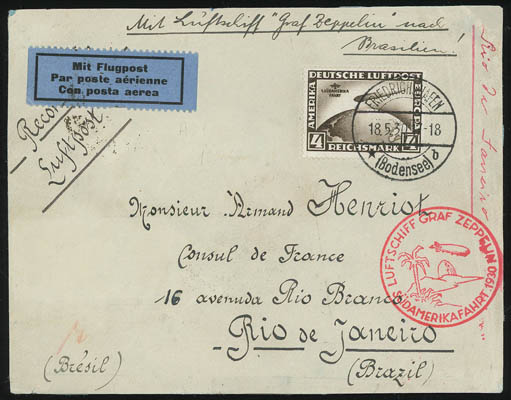 Mit Luftschiff "Graf Zeppelin" nach
Brasilien!
Mit Flugpost
Par poste aérienne
Con posta aerea
Luftpost
DEUTSCHE LUFTPOST
SÜDAMERIKA
FAHRT
AMERIKA
EUROPA
4 REICHSMARK 4
FRIEDRICHSHAFEN
18.5.30 -18
(Bodensee) d
Rio de Janeiro
Monsieur Armand Henriot
Consul de France
16 avenuda Rio Branco
Rio de Janeiro
(Brésil)
(Brazil)
LUFTSCHIFF GRAF ZEPPELIN 1930
SÜDAMERIKAFAHRT